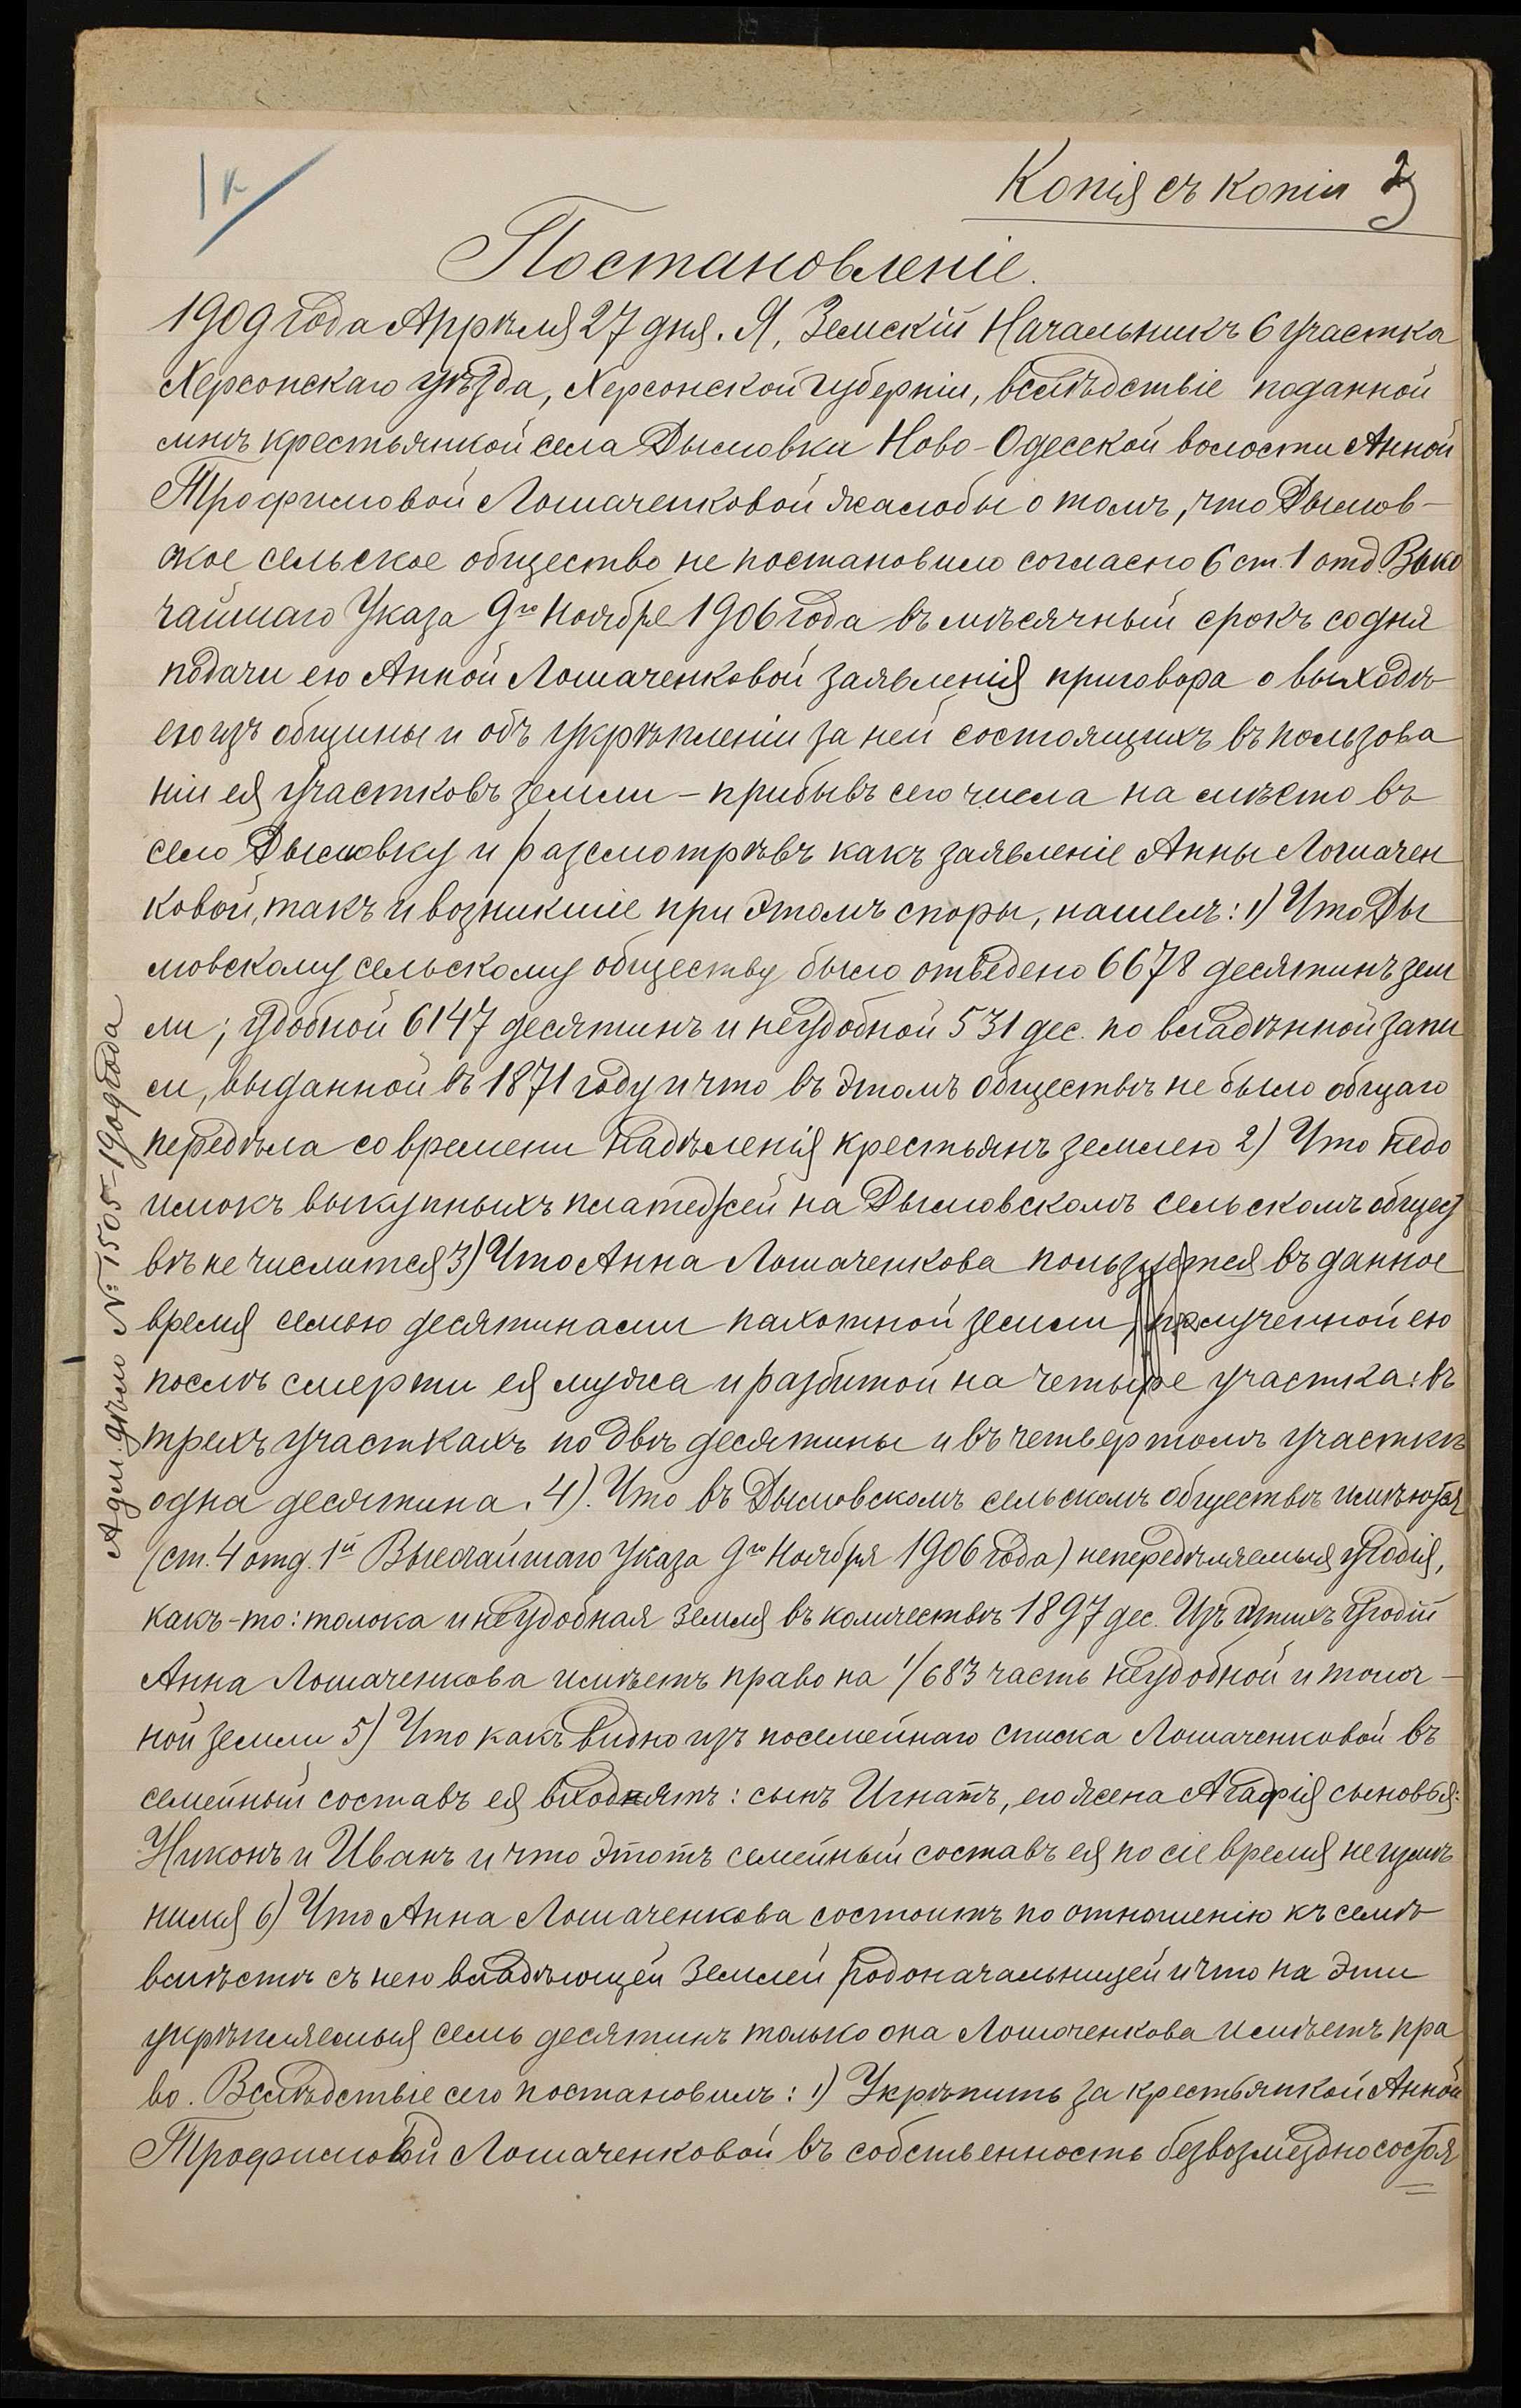 Копія съ копіи
Постановленіе.
1909 года Апрѣля 27 дня. Я, Земскій Начальникъ 6 участка
Херсонскаго уѣзда, Херсонской губерніи, вслѣдствіе поданной
мнѣ крестьянкой села Дымовки Ново-Одесской волости Анной
Трофимовой Ломаченковой жалобы о томъ, что Дымов-
ское сельское общество не постановило согласно 6 ст. 1 отд. Высо
чайшаго Указа 9го Ноября 1906 года въ мѣсячный срокъ со дня
подачи ею Анной Ломаченковой заявленія приговора о выходѣ
ею изъ общины и объ укрѣпленіи за ней состоящихъ въ пользова
ніи ея участковъ земли – прибывъ сего числа на мѣсто въ
село Дымовку и разсмотрѣвъ какъ заявленіе Анны Ломачен
ковой, такъ и возникшіе при этомъ споры, нашелъ: 1) Что Ды
мовскому сельскому обществу было отведено 6678 десятинъ зем
ли; удобной 6147 десятинъ и неудобной 531 дес. по владѣнной запи
си, выданной въ 1871 году и что въ этомъ обществѣ не было общаго
передѣла со времени надѣленія крестьянъ землею 2) Что недо
имокъ выкупныхъ платежей на Дымовскомъ сельскомъ общест
вѣ не числится 3) Что Анна Ломаченкова пользуется въ данное
время семью десятинами пахотной земли, полученной ею
послѣ смерти ея мужа и разбитой на четыре участка: въ
трехъ участкахъ по двѣ десятины и въ четвертомъ участкѣ
одна десятина. 4). Что въ Дымовскомъ сельскомъ обществѣ имѣются
(ст. 4 отд. 1й Высочайшаго Указа 9го Ноября 1906 года) непередѣляемыя угодія,
какъ-то: толока и неудобная земля въ количествѣ 1897 дес. Изъ этихъ угодій
Анна Ломаченкова имѣетъ право на 1/683 часть неудобной и толоч-
ной земли 5) Что какъ видно изъ посемейнаго списка Ломаченковой въ
семейный составъ ея входятъ: сынъ Игнатъ, его жена Агафія сыновья:
Никонъ и Иванъ и что этотъ семейный составъ ея по сіе время не измѣ
нился 6) Что Анна Ломаченкова состоитъ по отношенію къ семьѣ
вмѣстѣ съ нею владѣющей землей родоначальницей и что на эти
укрѣпляемыя семь десятинъ только она Ломаченкова имѣетъ пра
во. Вслѣдствіе сего постановилъ: 1) Укрѣпить за крестьянкой Анной
Трофимовой Ломаченковой въ собственность безвозмездно состоя
Адм. дѣло № 1505–190 года